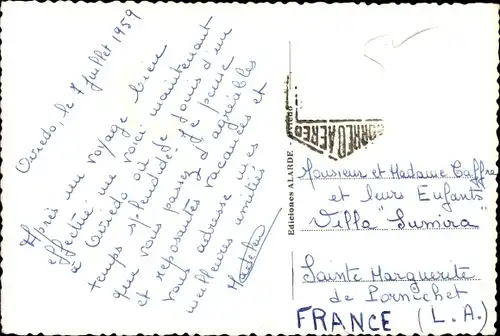 Oviedo, le 7 Juillet 1959
Après un voyage bien
effectué me voici maintenant
à Oviedo où je jouis d'un
temps splendide. Je pense
que vous passez d'agréables
et reposantes vacances et
vous adresse mes
meilleures amitiés
Ediciones ALARDE
CORREO AEREO
Monsieur et Madame Caffra
et leurs Enfants
Villa "Sumira"
Sainte Marguerite
de Pornichet
FRANCE (L.A.)